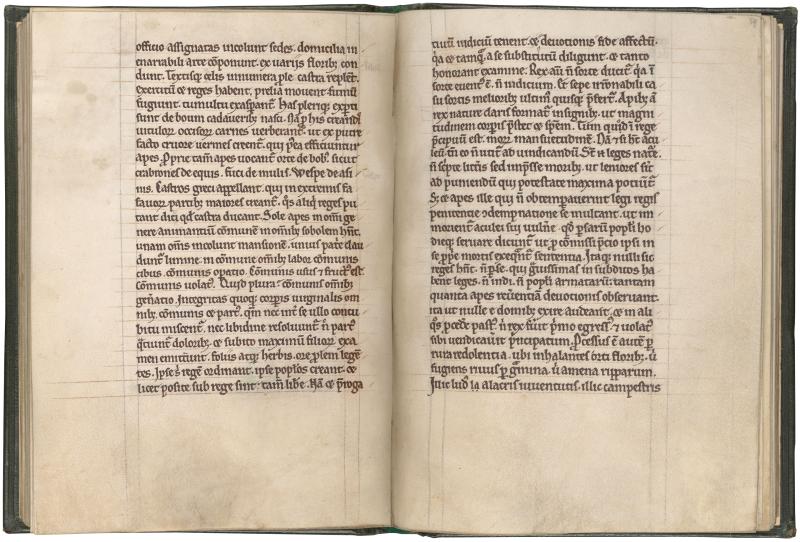 officio assignatas incolunt sedes. domicilia in
enarrabili arte cōponunt. ex uarijs florib; con
dunt. Textisq; celis innumera ple castra replēt.
exercitū ⁊ reges habent. prelia mouent. fumū
fugiunt. tumultu exasꝑant. Has pleriq; exꝑti
sunt de boum cadauerib; nasci. Nā ꝓ his creandis
uitulorꝝ occisorꝝ carnes uerberant. ut ex putre
facto cruore uermes creent̄. qui p̄ea efficiuntur
apes. Ꝓprie tam̄ apes uocant̄ orte de bob;. sicut
crabrones de equis. fuci de mulis. Wespe de asi
nis. Castros greci appellant. qui in extremis fa
uorꝝ partib; maiores creant̄. q̄s aliq̇ reges pu
tant dici qd̄ castra ducant. Sole apes in om̄i ge
nere animantiū cōmunē om̄ib; sobolem hn̄t.
unam om̄s incolunt mansionē. unius patrie clau
dunt̄ limine. in cōmune om̄ib; labor cōmunis
cibus. cōmunis oꝑatio. Cōmunis usus ⁊ fruct;̄ est.
cōmunis uolat;. Quid plura? cōmunis om̄ib;
gen̄atio. Integritas quoq; corꝑis uirginalis om
nib; cōmunis ⁊ part;. qm̄ nec int̄ se ullo concu
bitu miscent̄. nec libidine resoluunt̄. n̄ part;
q̇tiunt̄ dolorib;. ⁊ subito maximū filiorꝝ exa
men emittunt. foliis atq; herbis. ore ꝓlem legē
tes. Ipse s̄ regē ordinant. ipse popl̄os creant. ⁊
licet posite sub rege sint. tam̄ lib̄e. Nā ⁊ p̄roga
tiuū iudicii tenent. ⁊ deuotionis fide affectū.
q̇a ⁊ tamq̄ a se substitutū diligunt. ⁊ tanto
honorant examine. Rex au̅ n̄ sorte ducit̄. q̇a ī
sorte euent; ē. n̄ iudicium. Et sepe irr̄onabili ca
su sortis meliorib; ultim; quisq; p̄fert̄. Apib; ā
rex nature claris format̄ insignib;. ut magni
tudinem corꝑis p̄stet ⁊ sp̄em. Tum quid ī rege
p̄cipuū est. morꝝ mansuetudinē. Nā ⁊ si ht̄ acu
leū. tn̄ eo n̄ utit̄ ad uindicandū. St̄ n̄ leges nat̄e.
n̄ sc̄pte litt̄is. sed inp̄sse morib;. ut leniores sīt
ad puniendū qui potestate maxima potiunt̄.
S; ⁊ apes ille qui n̄ obtemꝑauerint legi regis
penitentie ⁊dempnatione se multant. ut im
moriant̄ aculei sui uuln̄e. qd̄ ꝑsarū popl̄i ho
dieq; seruare dicunt̄. ut ꝓ cōmissi p̄cio ipsi in
se ꝓpe mortis exeqn̄t̄ sententia. Itaq; nulli sic
reges hn̄t. n̄ ꝑse. qui g̈uissimas in subditos ha
bent leges. n̄ indi. n̄ popl̄i armatarū. tantam
quanta apes reu̅entiā deuotionis obseruant.
ita ut nulle e domib; exire audeant. ⁊ in ali
q̄s ꝓcedē past;. n̄ rex fūit p̄mo egress;. ⁊ uolat;
sibi uendicau̅it p̄incipatum. Ꝓcessus ē aute ꝑ
rura redolentia. ubi inhalantes orti florib;. ū
fugiens riuus ꝑ g̈mina. ū amena ripparum.
Illic lud; la alacris iuuentutis. illic campestris